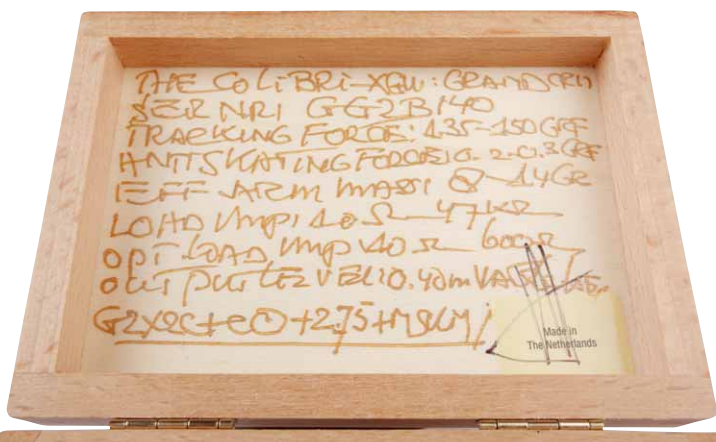 THE COLiBRi-XGW: GRAND CRU
SER NR: GG2B140
TRACKING FORCE: 1.35-1.50 GRF
ANTISKATING FORCE: 0.2-0.3 GRF
EFF ARM MASS: 8-14GR
LOAD IMP: 10 Ω - 47KΩ
OPT LOAD IMP 40 Ω - 600Ω
OUTPUT LEVEL: 0.40m
G2X
Made in
The Netherlands